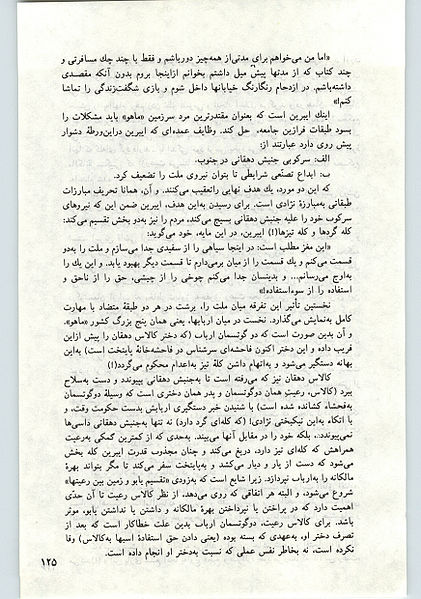 «اما من می‌خواهم برای مدتی‌از همه‌چیز دورباشم و فقط با چند چك مسافرتی و
چند کتاب که از مدتها پیش میل داشتم بخوانم ازاینجا بروم بدون آنکه مقصدی
داشته‌باشم. در ازدحام رنگارنگ خیابانها داخل شوم و بازی شگفت‌زندگی را تماشا
کنم!»
اینك ایبرین است که بعنوان مقتدرترین مرد سرزمین «ماهو» باید مشکلات را
بسود طبقات فرازین جامعه، حل کند. وظایف عمده‌ای که ایبرین دراین‌ورطهٔ دشوار
پیش روی دارد عبارتند از:
الف: سرکوبی جنبش دهقانی در جنوب.
ب: ابداع تصنّعی شرایطی تا بتوان نیروی ملت را تضعیف کرد.
که این دو مورد، یك هدف نهایی راتعقیب می‌کنند. و آن، همانا تحریف مبارزات
طبقاتی به‌مبارزهٔ نژادی است. برای رسیدن به‌این هدف، ایبرین ضمن این که نیروهای
سرکوب خود را علیه جنبش دهقانی بسیج می‌کند، مردم را نیز به‌دو بخش تقسیم می‌کند:
کله گردها و کله تیزها(!) ایبرین، در این مایه، خود می‌گوید:
«این مغز مطلب است: در اینجا سیاهی را از سفیدی جدا می‌سازم و ملت را به‌دو
قسمت می‌کنم و یك قسمت را از میان برمی‌دارم تا قسمت دیگر بهبود یابد. و این یك را
به‌اوج می‌رسانم... و بدینسان جدا می‌کنم چوخی را از چیشی، حق را از ناحق و
استفاده را از سوءاستفاده!»
نخستین تأثیر این تفرقه میان ملت را، برشت در هر دو طبقهٔ متضاد با مهارت
کامل به‌نمایش می‌گذارد. نخست در میان اربابها، یعنی همان پنج بزرگ کشور «ماهو».
و آن بدین صورت است که دو گوتسمان ارباب (که دختر کالاس دهقان را پیش ازاین
فریب داده و این دختر اکنون فاحشه‌ای سرشناس در فاحشه‌خانهٔ پایتخت است) به‌این
بهانه دستگیر می‌شود و به‌اتهام داشتن کلهٔ نیز به‌اعدام محکوم می‌گردد(!)
کالاس دهقان نیز که می‌رفته است تا به‌جنبش دهقانی بپیوندد و دست به‌سلاح
ببرد (کالاس، رعیتِ همان دوگوتسمان و پدر همان دختری است که وسیلهٔ دوگوتسمان
به‌فحشاء کشانده شده است) با شنیدن خبر دستگیری اربابش بدست حکومت وقت، و
با اتکاء به‌این نیکبختی نژادی! (که کله‌ای گرد دارد) نه تنها به‌جنبش دهقانی داسی‌ها
نمی‌پیوندد، بلکه خود را در مقابل آنها می‌بیند. به‌حدی که از کمترین کمکی به‌رعیت
همراهش که کله‌ای نیز دارد، دریغ می‌کند و چنان مجذوب قدرت ایبرین کله بخش
می‌شود که دست از یار و دیار می‌کشد و به‌پایتخت سفر می‌کند تا مگر بتواند بهرهٔ
مالکانه را به‌ارباب نپردازد. زیرا شایع است که به‌زودی «تقسیم یابو و زمین بین رعیتها»
شروع می‌شود، و البته هر اتفاقی که روی می‌دهد، از نظر کالاس رعیت تا آن حدّی
اهمیت دارد که در پراختن یا نپرداختن بهرهٔ مالکانه و داشتن یا نداشتن یابو، موثر
باشد. برای کالاس رعیت، دوگوتسمان ارباب بدین علت خطاکار است که بعد از
تصرف دختر او، به‌عهدی که بسته بوده (یعنی دادن حق استفادهٔ اسبها به‌کالاس) وفا
نکرده است، نه بخاطر نفس عملی که نسبت به‌دختر او انجام داده است.
۱۲۵